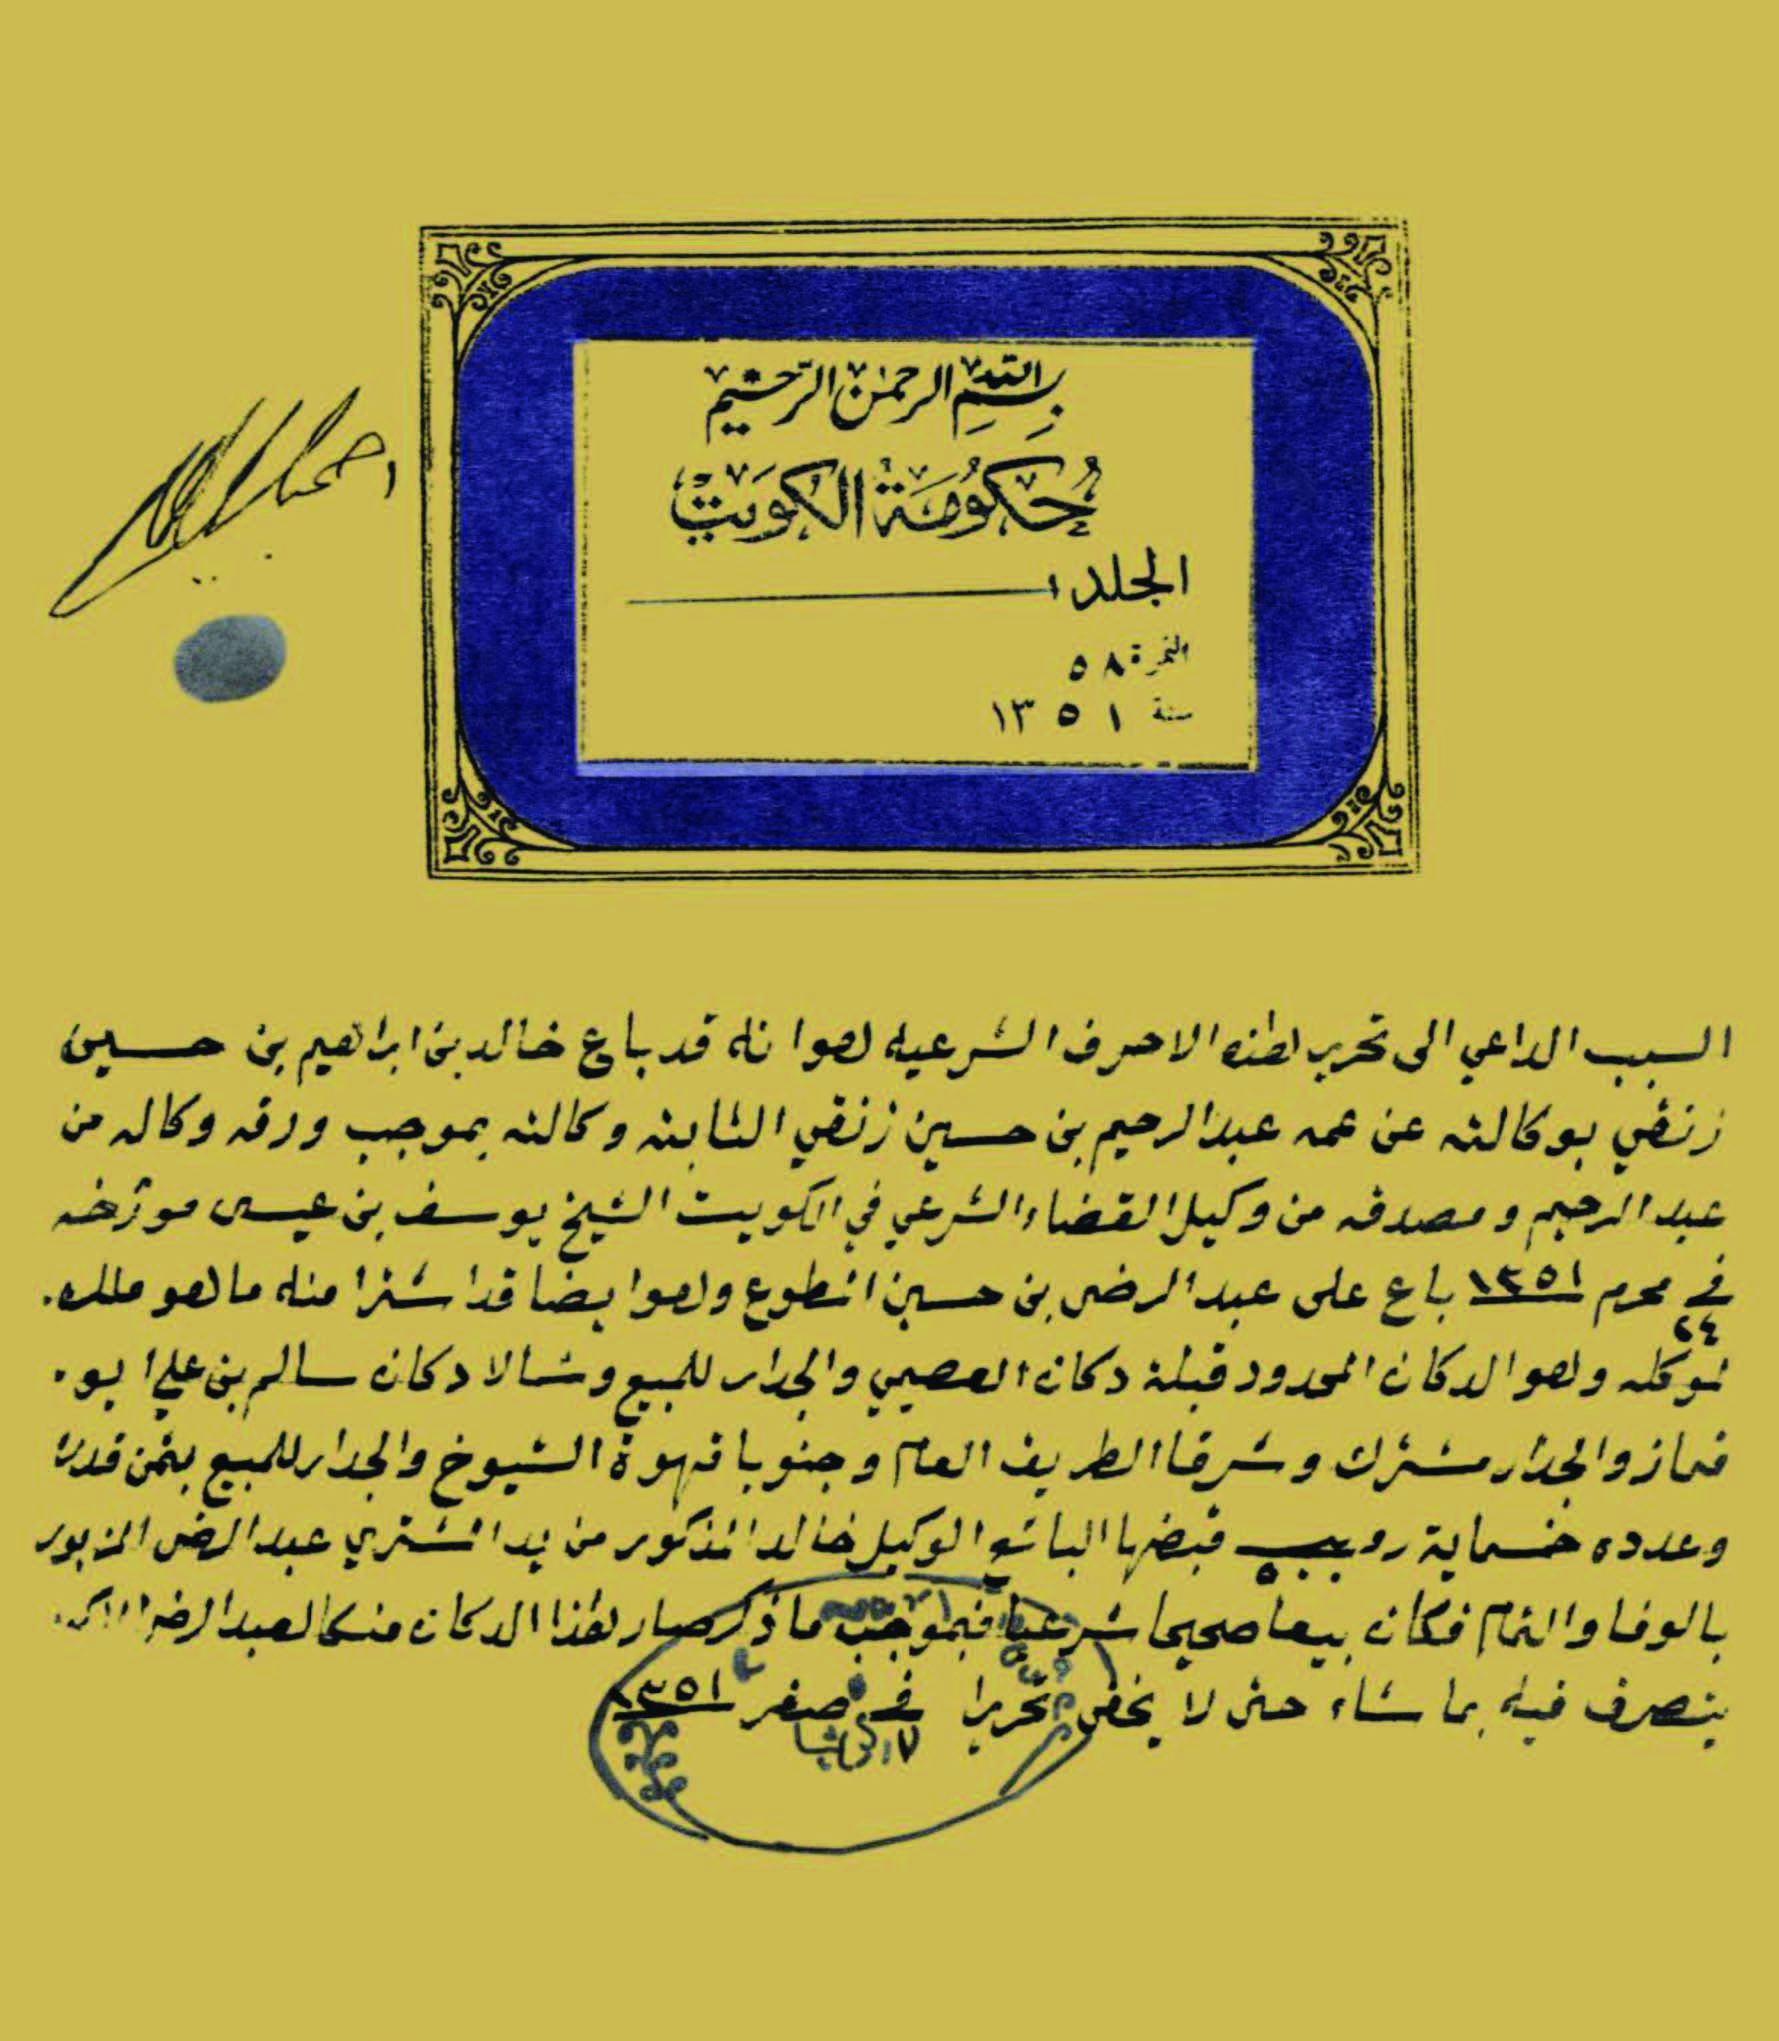 بسم الله الرحمن الرحيم
حكومة الكويت
الجلد ١
النمرة ٥٨
سنة ١٣٥١
السبب الداعي الى تحرير هذه الاحرف الشرعيه هو انه قد باع خالد بن ابراهيم بن حسين
زنقي بوكالته عن عمه عبد الرحيم بن حسين زنقي الثابته وكالته بموجب ورقه وكاله من
عبد الرحيم ومصدقه من وكيل القضاء الشرعي في الكويت الشيخ يوسف بن عيسى مورخه
في ٢٤ محرم ١٣٥١ باع على عبد الرضى بن حسين انطوع وهو ايضا قد اشترا منه ما هو ملك
لموكله وهو الدكان المحدود قبلة دكان العصيمي والجدار للمبيع وشمالا دكان سالم بن علي ابو
قماز والجدار مشترك وشرقا الطريق العام وجنوبا قهوة الشيوخ والجدار للمبيع بثمن قدره
وعدده خسماية روبيه ٥٠٠ قبضها البائع الوكيل خالد المذكور من يد المشتري عبد الرضى المزبور
بالوفا والتمام فكان بيعا صحيحا شرعيا فبموجب ما ذكر صار هذا الدكان ملكا لعبد الرضى
يتصرف فيه بما شاء حتى لا يخفى تحريرا في ١٧ صفر ١٣٥١